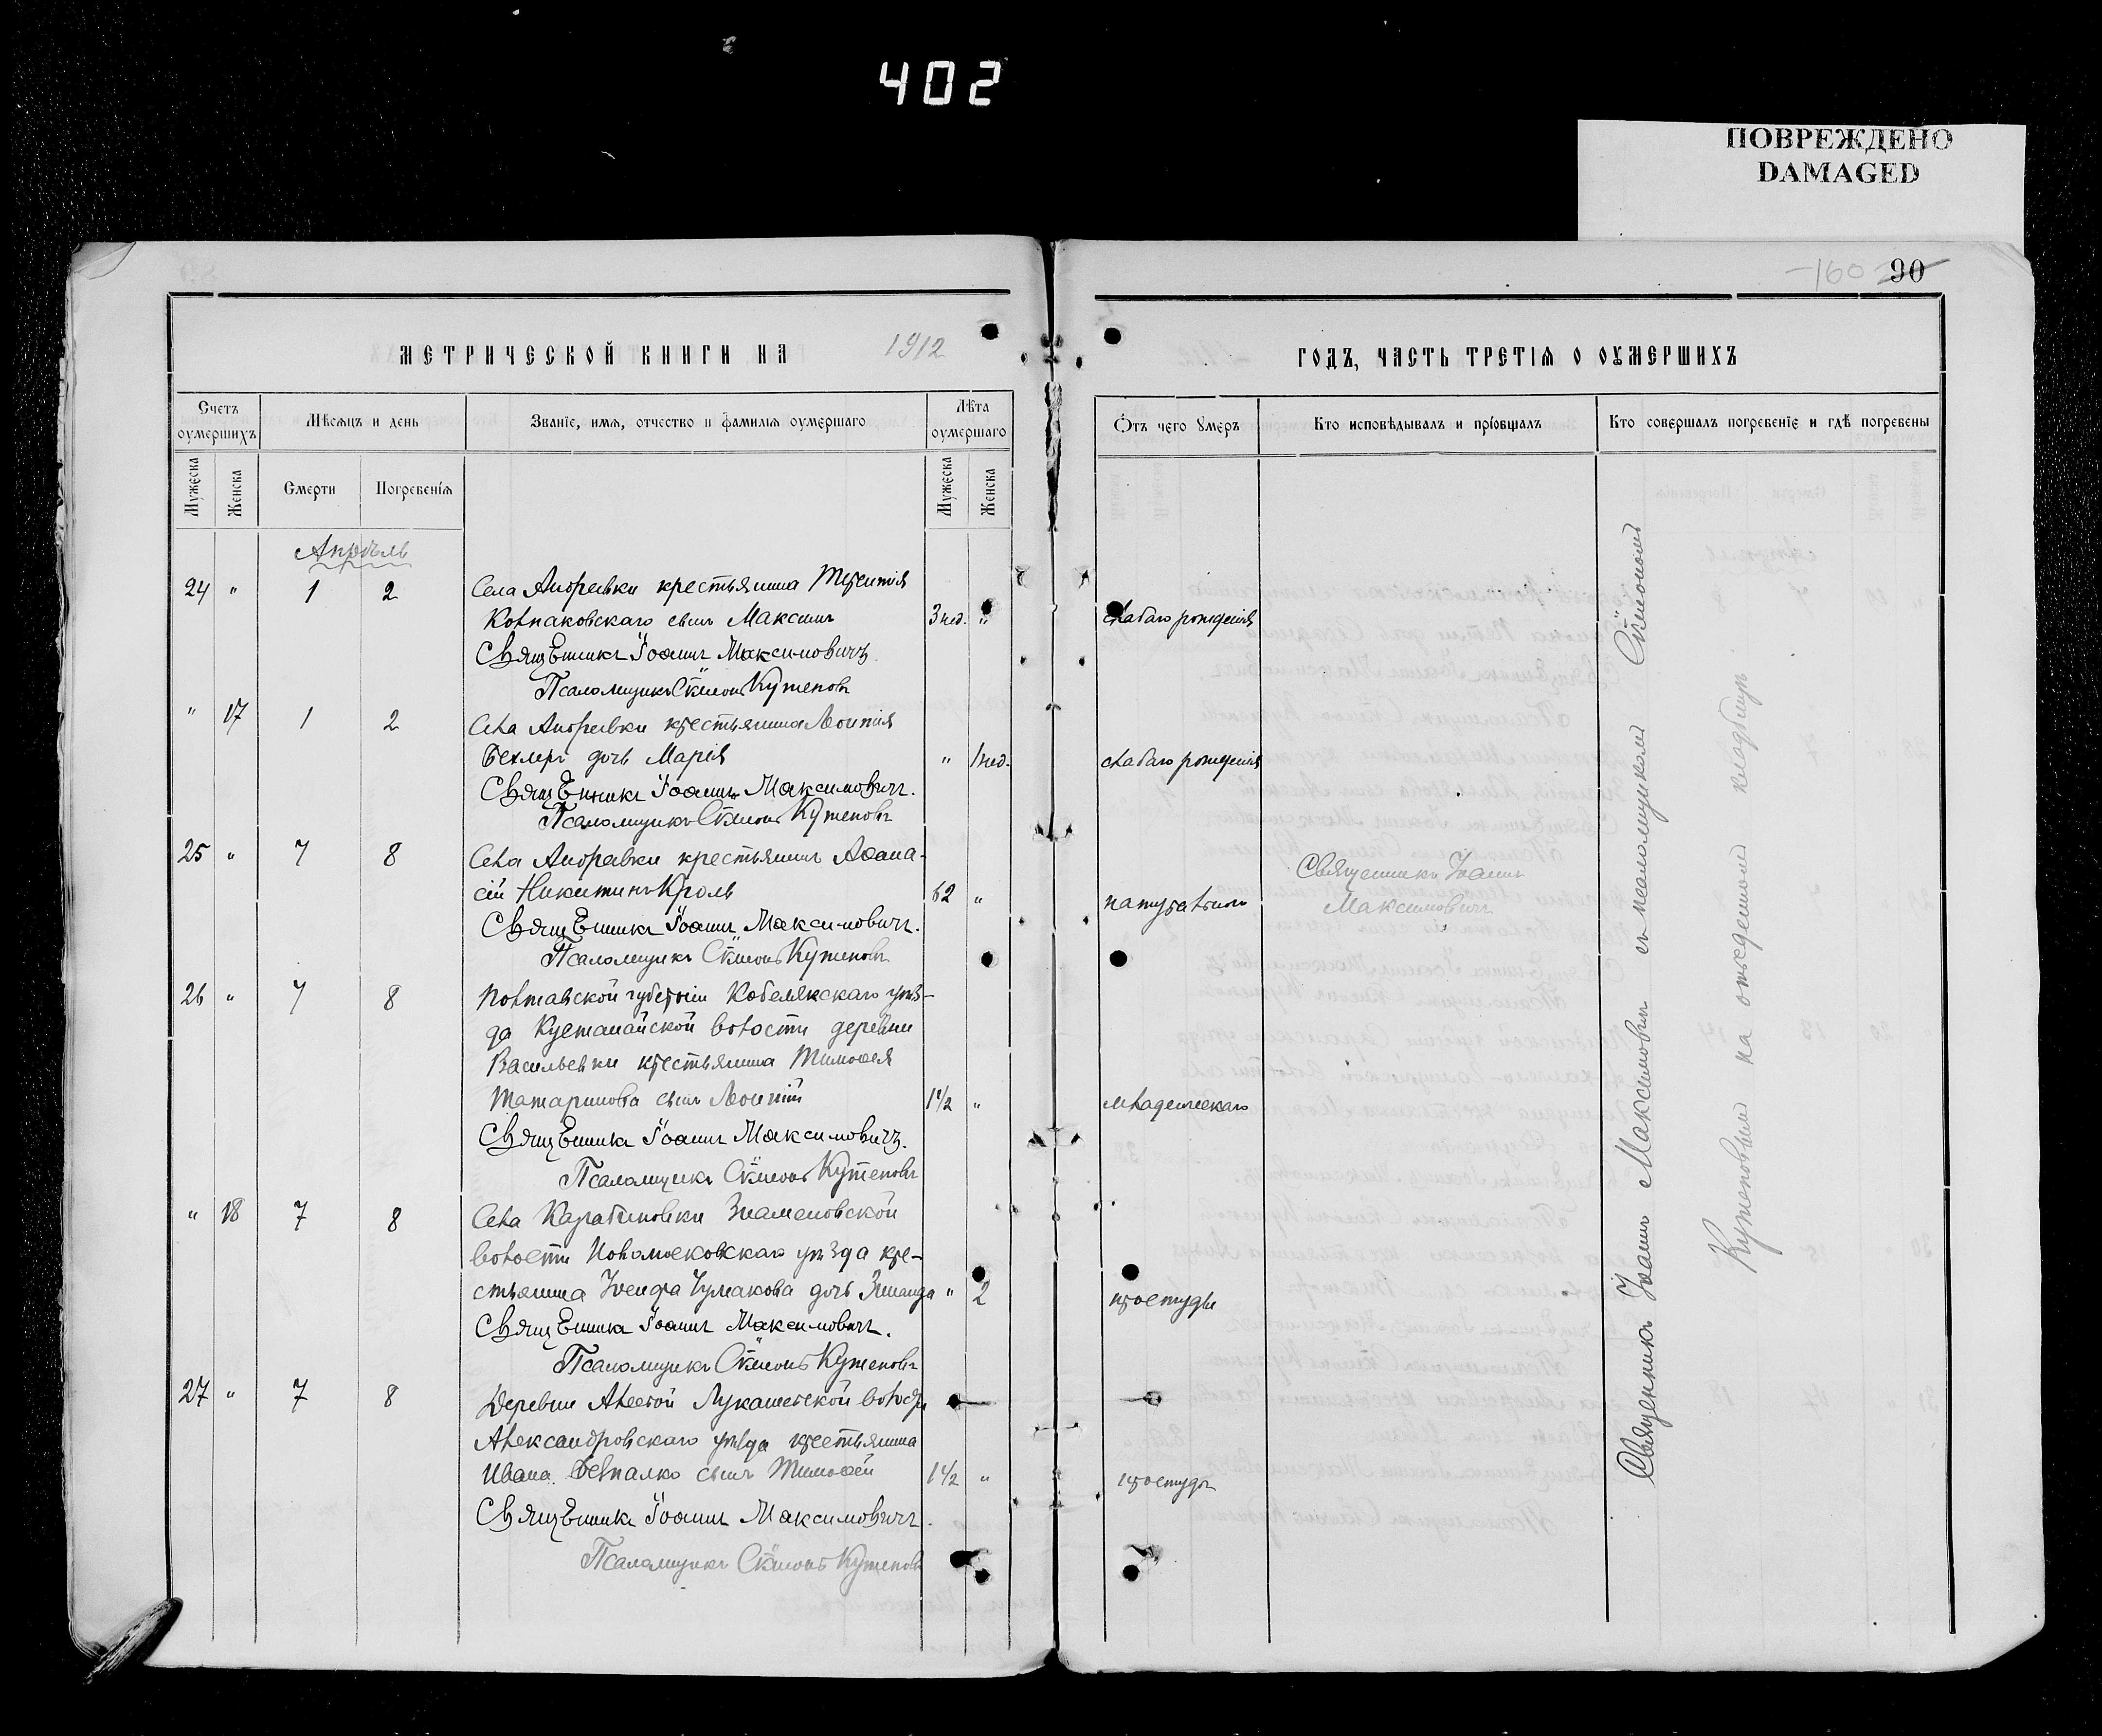 402
ПОВРЕЖДЕНО
DAMAGED
160
90
МЕТРИЧЕСКОЙ КНИГИ НА 1912
ГОДЪ, ЧАСТЬ ТРЕТІѦ О ОУМЕРШИХЪ
Счетъ оумершихъ
Мѣсяцъ и день
Званіе, имя, отчество и фамилія оумершаго
Лѣта оумершаго
Отъ чего умеръ
Кто исповѣдывалъ и пріобщалъ
Кто совершалъ погребеніе и гдѣ погребены
Мужеска
Женска
Смерти
Погребенія
Мужеска
Женска
Апрѣль
24 " 1 2 Села Андреевки крестьянина Терентія
Колпаковскаго сынъ Максимъ 3 нед. " слабаго рожденія
Священникъ Іоаннъ Максимовичъ
Псаломщикъ Сѵмеонъ Кутеповъ
" 17 1 2 Села Андреевки крестьянина Леонтія
дочь Марія " 1 нед. слабаго рожденія
Священникъ Іоаннъ Максимовичъ.
Псаломщикъ Сѵмеонъ Кутеповъ
25 " 7 8 Села Андреевки крестьянинъ Аѳана-
сій Никитинъ Кроль 62 " натурально
Священникъ Іоаннъ
Максимовичъ
Священникъ Іоаннъ Максимовичъ.
Псаломщикъ Сѵмеонъ Кутеповъ
26 " 7 8 Полтавской губерніи Кобелякскаго уѣз-
да волости деревни
Васильевки крестьянина Тимоѳея
Татаринова сынъ Леонтій 1 1/2 " младенческаго
Священникъ Іоаннъ Максимовичъ.
Псаломщикъ Сѵмеонъ Кутеповъ
" 18 7 8 Села Карабиновки Знаменовской
волости Новомосковскаго уѣзда кре-
стьянина Іосифа Чумакова дочь Зинаида " 2 простуды
Священникъ Іоаннъ Максимовичъ.
Псаломщикъ Сѵмеонъ Кутеповъ
27 " 7 8 Деревни Лукашевской
Александровскаго уѣзда крестьянина
Ивана сынъ Тимоѳей 1 1/2 " простуды
Священникъ Іоаннъ Максимовичъ.
Псаломщикъ Сѵмеонъ Кутеповъ
Священникъ Іоаннъ Максимовичъ съ псаломщикомъ Сѵмеономъ
Кутеповымъ на отведенномъ кладбищѣ